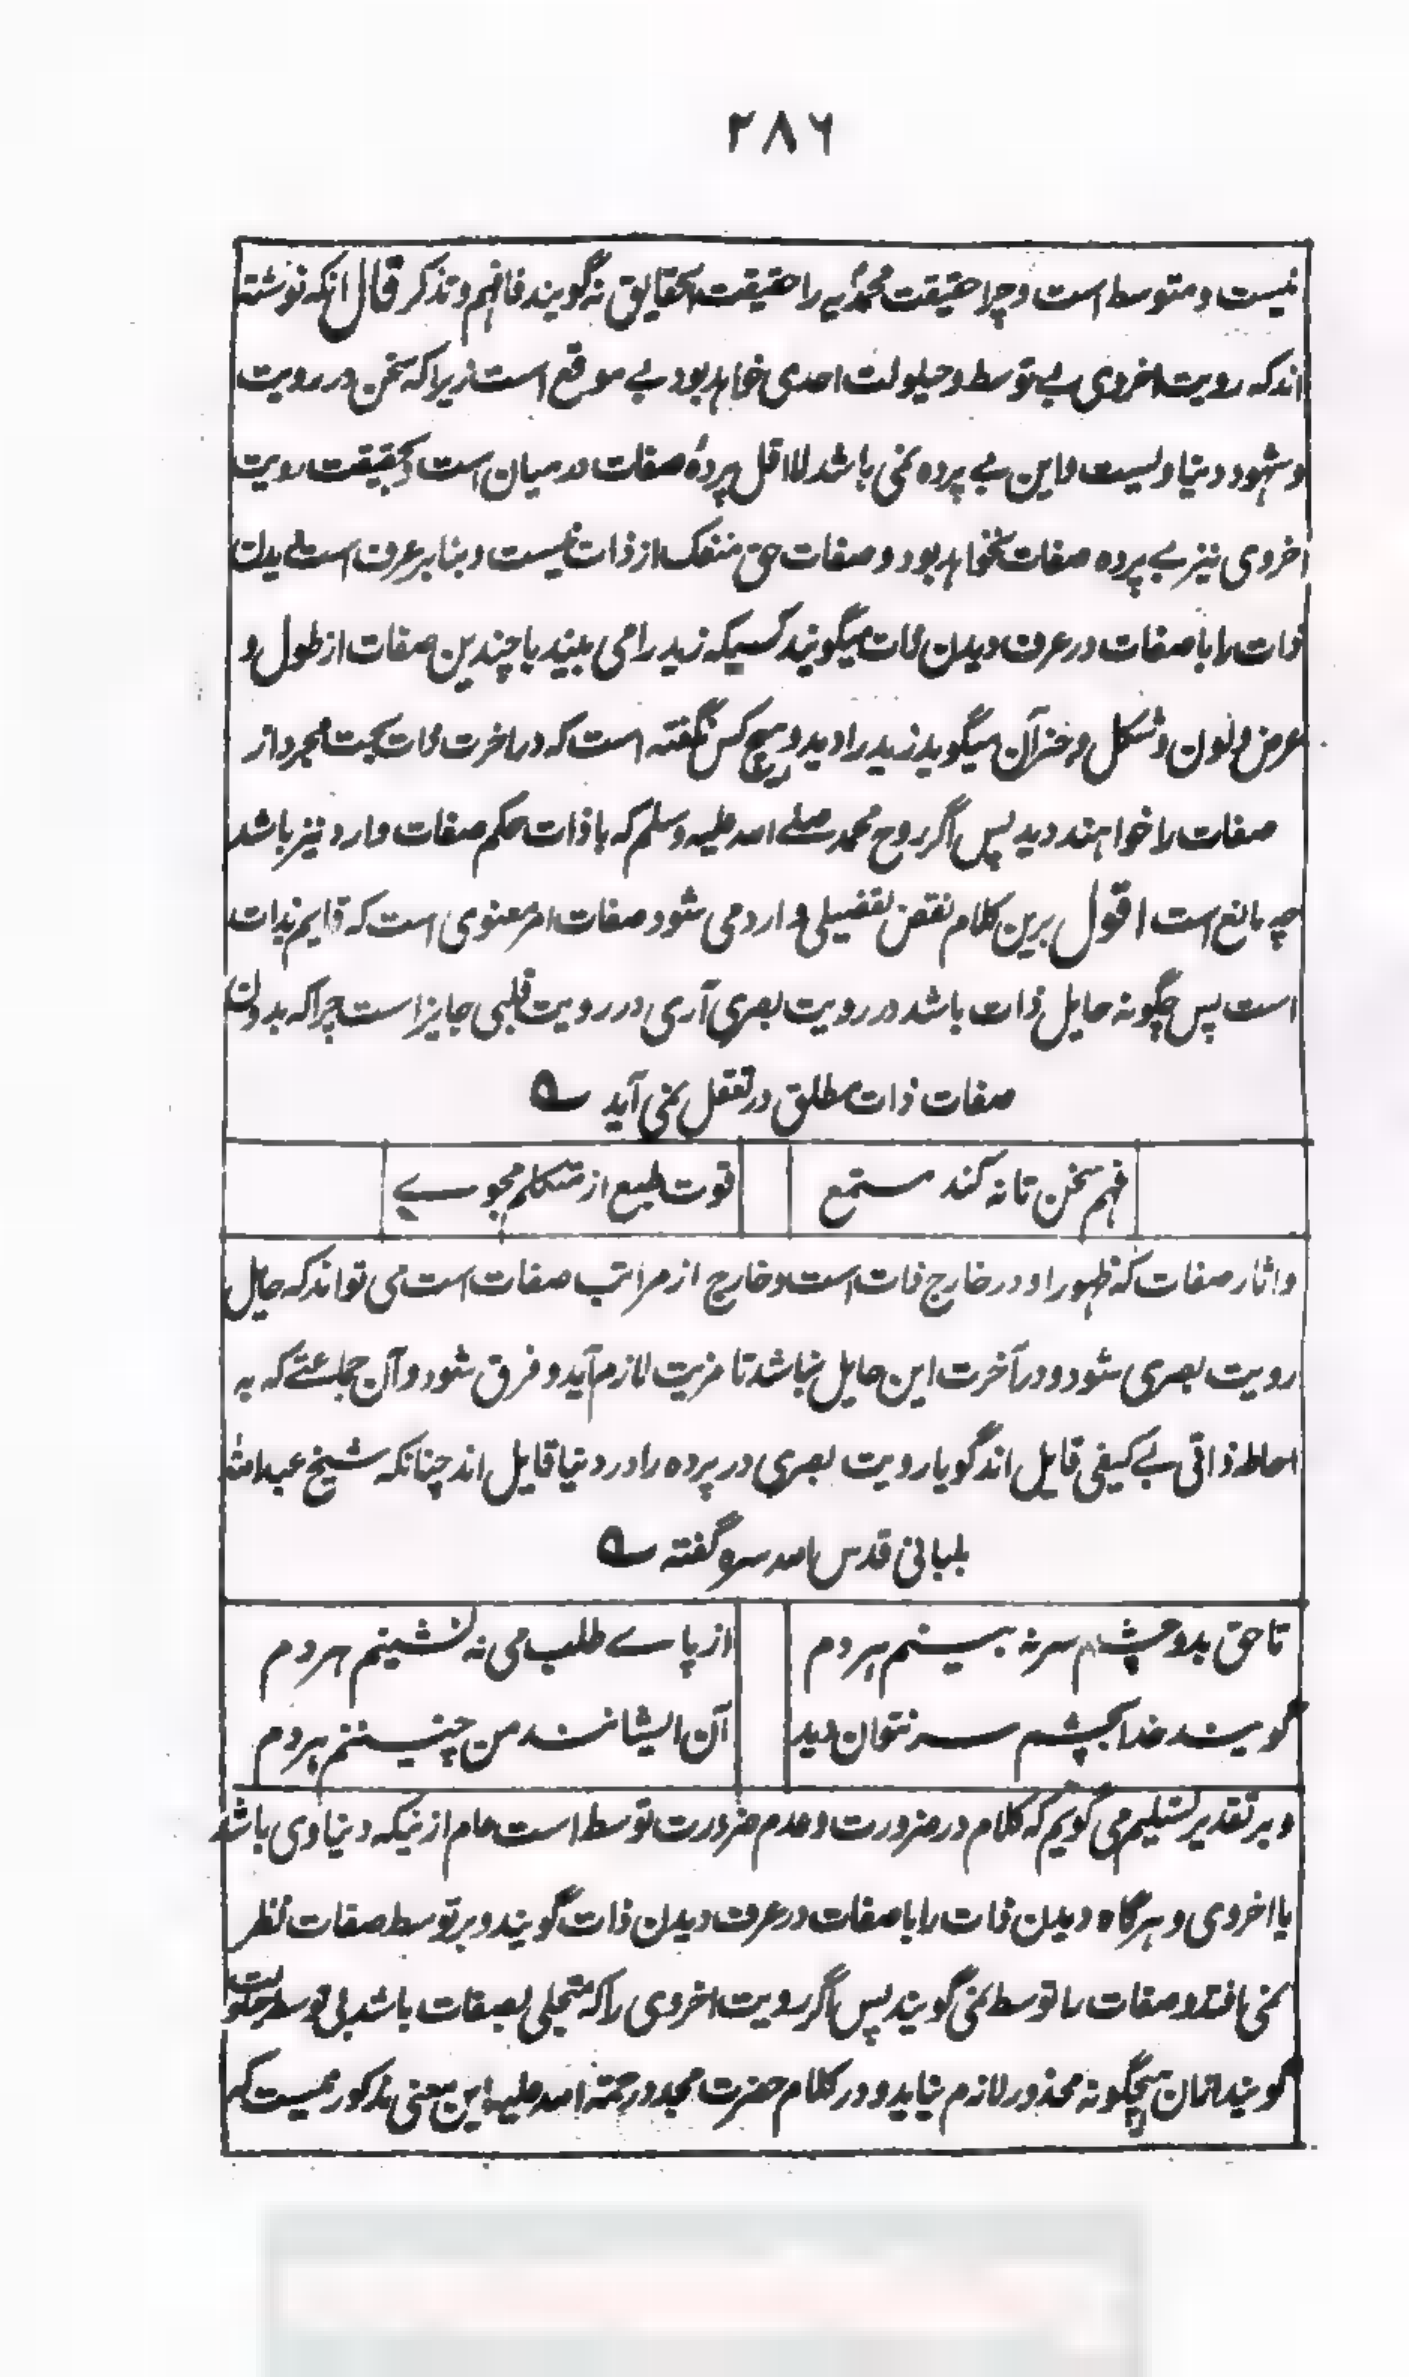 ۲۸۶
نیست و متوسط است و چرا حقیقت محمدیه را حقیقت الحقایق نه گویند فافهم و تذکر قال انکه نوشته
اند که رویت اخروی بی توسط و حیلولت احدی خواهد بود بے موقع است زیرا که سخن در رویت
و شهود دنیاویست و این بے پرده نمی باشد لا اقل پردۂ صفات در میان است و بحقیقت رویت
اخروی نیز بے پرده صفات نخواهد بود و صفات حق منفک از ذات نیست و بنا بر عرف است دیدن
ذات را با صفات در عرف دیدن ذات میگویند کسیکه زید را می بیند با چندین صفات از طول و
عرض و لون و شکل و جز آن میگوید زید را دید و هیچ کس نگفته است که در اخرت ذات بحت مجرد از
صفات را خواهند دید پس اگر روح محمد صلے الله علیه وسلم که با ذات حکم صفات دارد نیز باشد
چه مانع است اقول برین کلام نقض تفضیلی وارد می شود صفات امر معنوی است که قایم بذات
است پس چگونه حایل ذات باشد در رویت بصری آری در رویت قلبی جایز است چرا که بدون
صفات ذات مطلق در تعقل نمی آید ؎
فهم سخن تا نه کند مستمع
قوت طبع از متکلم مجوے
و اثار صفات که ظهور او در خارج ذات است و خارج از مراتب صفات است می تواند که حایل
رویت بصری شود و در آخرت این حایل نباشد تا مزیت لازم آید و فرق شود و آن جماعتے که به
احاطه ذاتی بے کیفی قایل اند گویا رویت بصری در پرده را در دنیا قایل اند چنانکه شیخ عبد الله
بلیانی قدس الله سره گفته ؎
تا حق بدو چشم سر نه بینم هر دم
از پاے طلب می نه نشینم هر دم
گویند خدا بچشم سر نتوان دید
آن ایشانند من چنینم هر دم
و بر تقدیر تسلیم می گویم که کلام در ضرورت و عدم ضرورت توسط است عام ازینکه دنیاوی باشد
یا اخروی و هرگاه دیدن ذات را با صفات در عرف دیدن ذات گویند و بر توسط صفات نظر
نمی افتد و صفات را توسط نمی گویند پس اگر رویت اخروی را که متجلی بصفات باشد بی توسط و حیلولت
گویند ازان هیچگونه محذور لازم نیاید و در کلام حضرت مجدد رحمة الله علیه این معنی مذکور نیست که